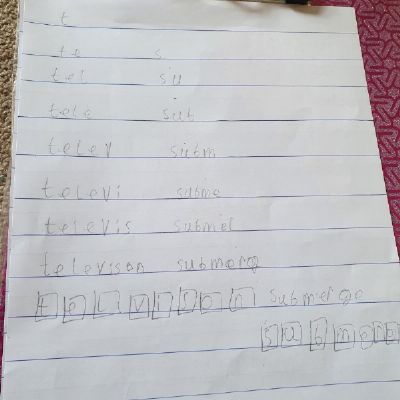 t
te s
tel su
tele sub
telev subm
televi subme
televis submer
televison submerg
telvison submerge
submerg